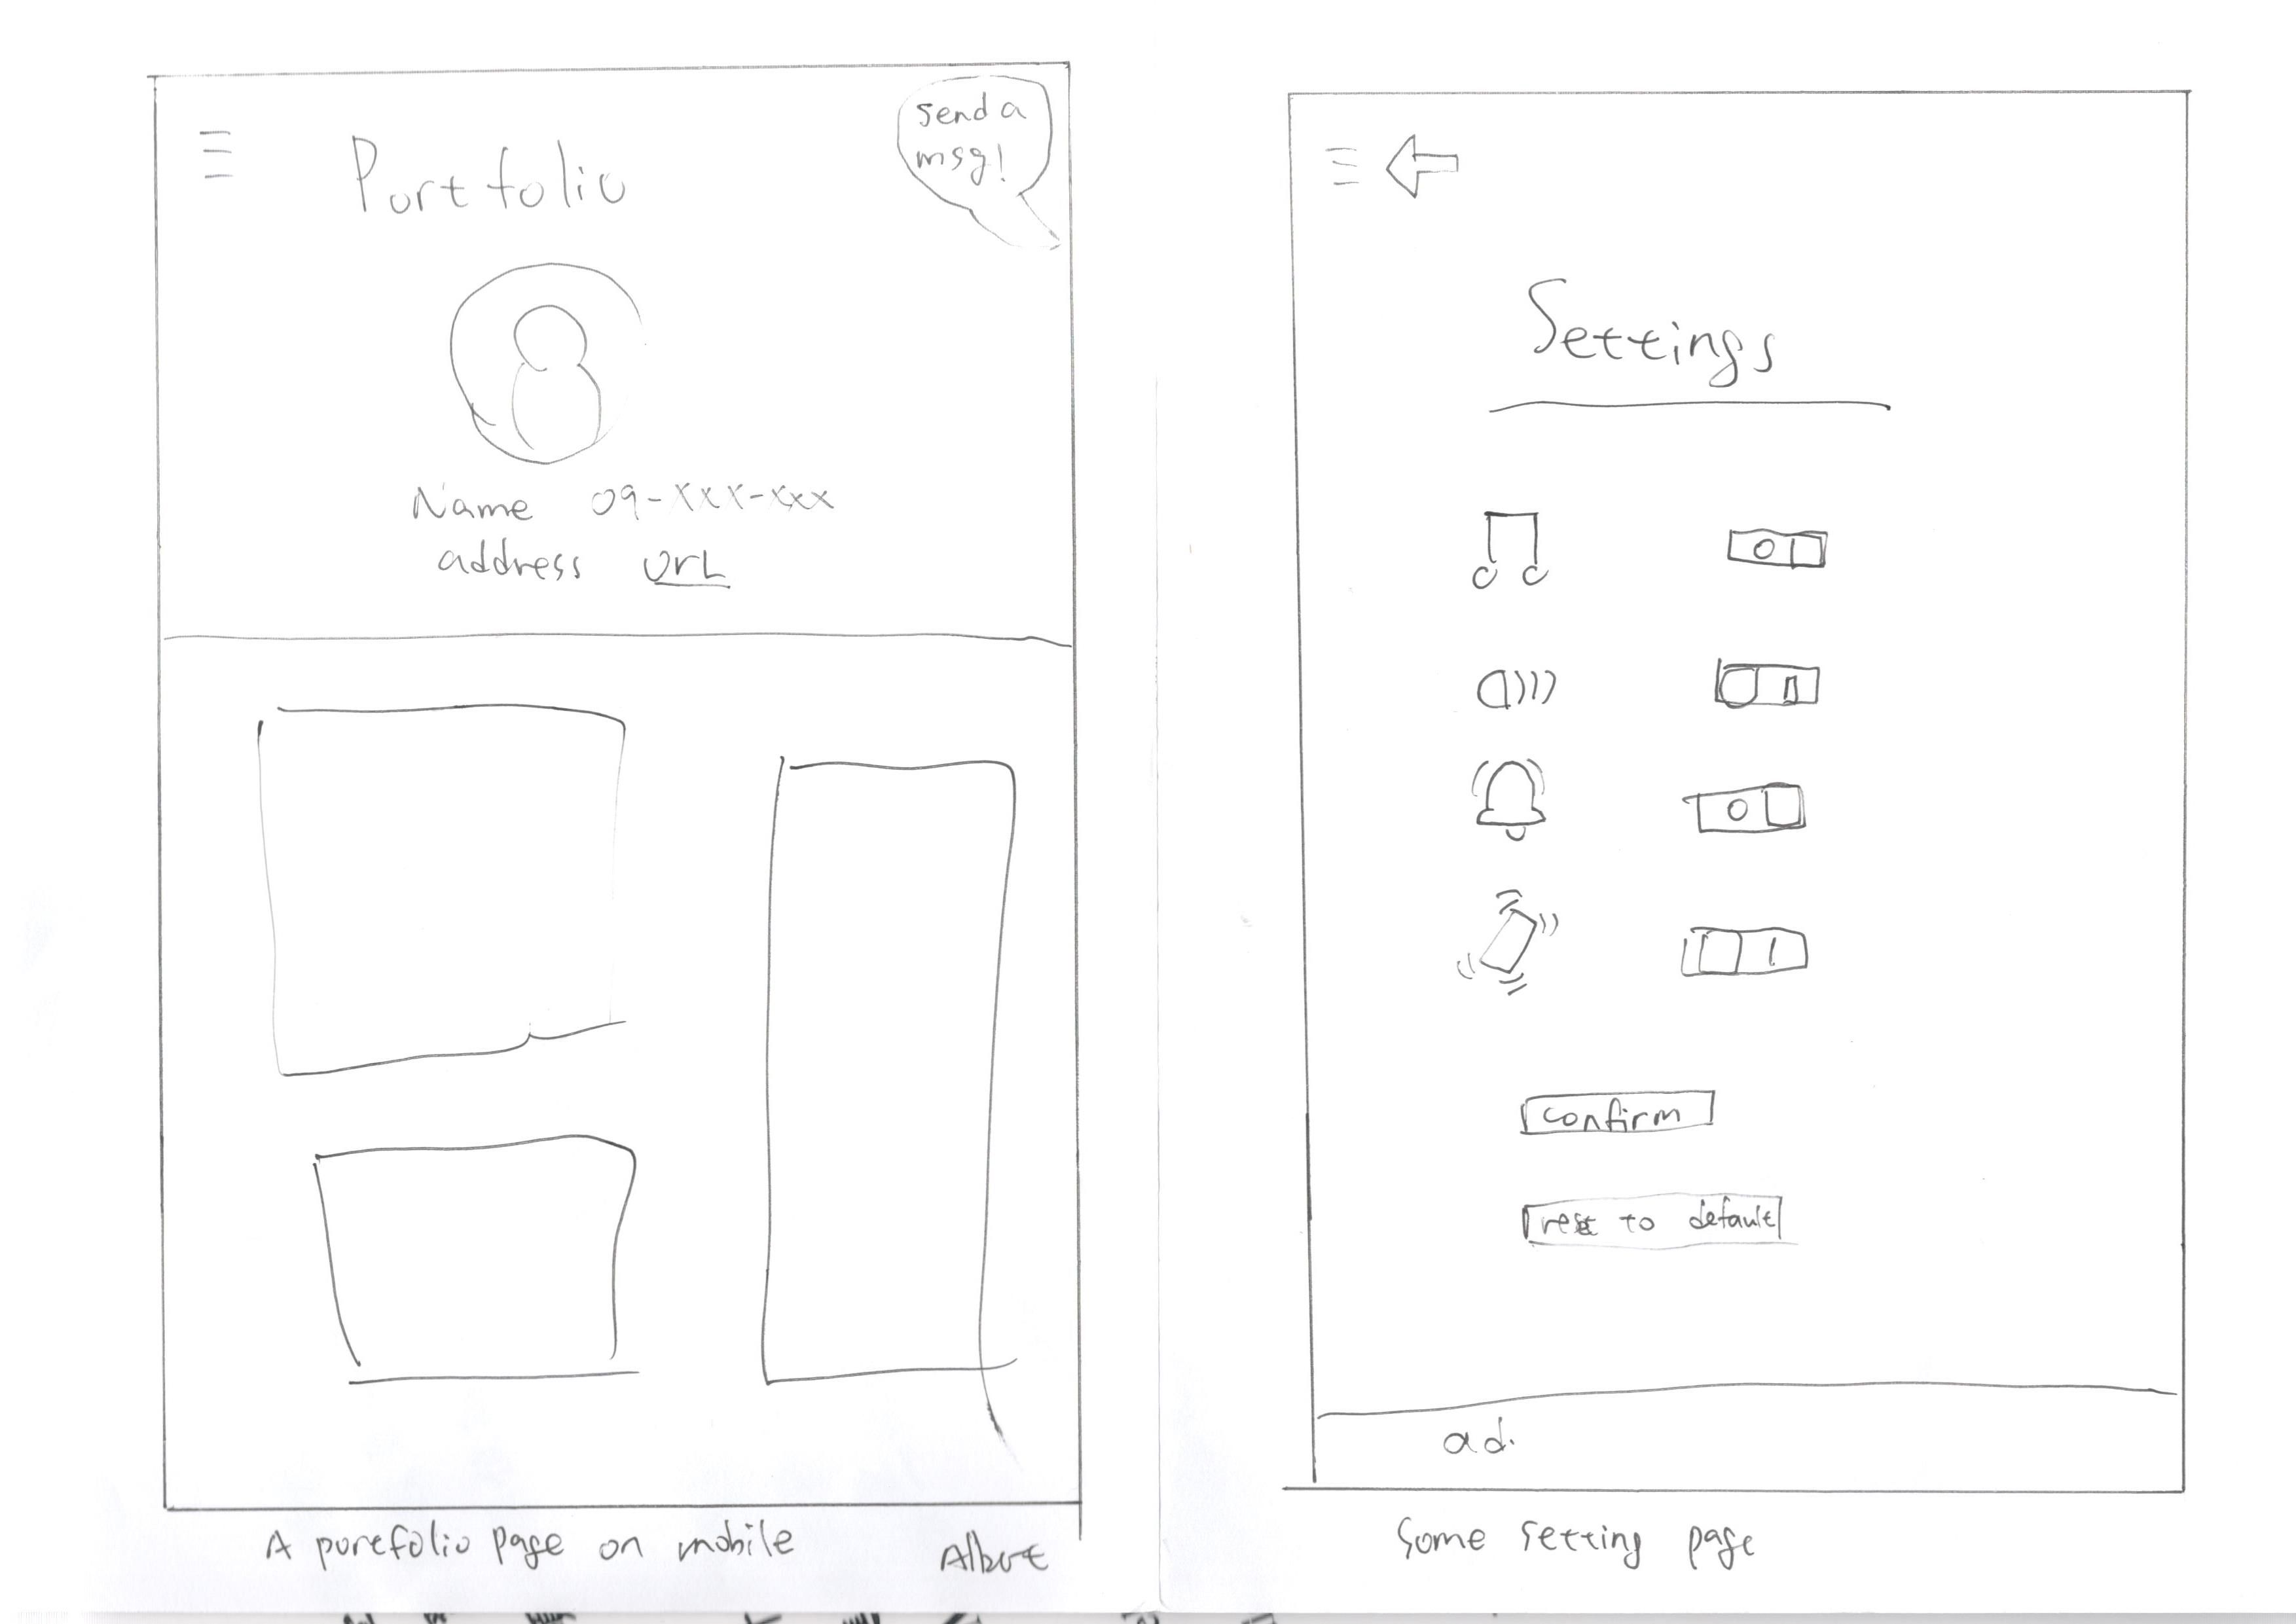 Portfolio
send a
msg!
Name 09-xxx-xxx
address URL
A portfolio page on mobile
Albert
Settings
confirm
reset to default
ad.
Some setting page